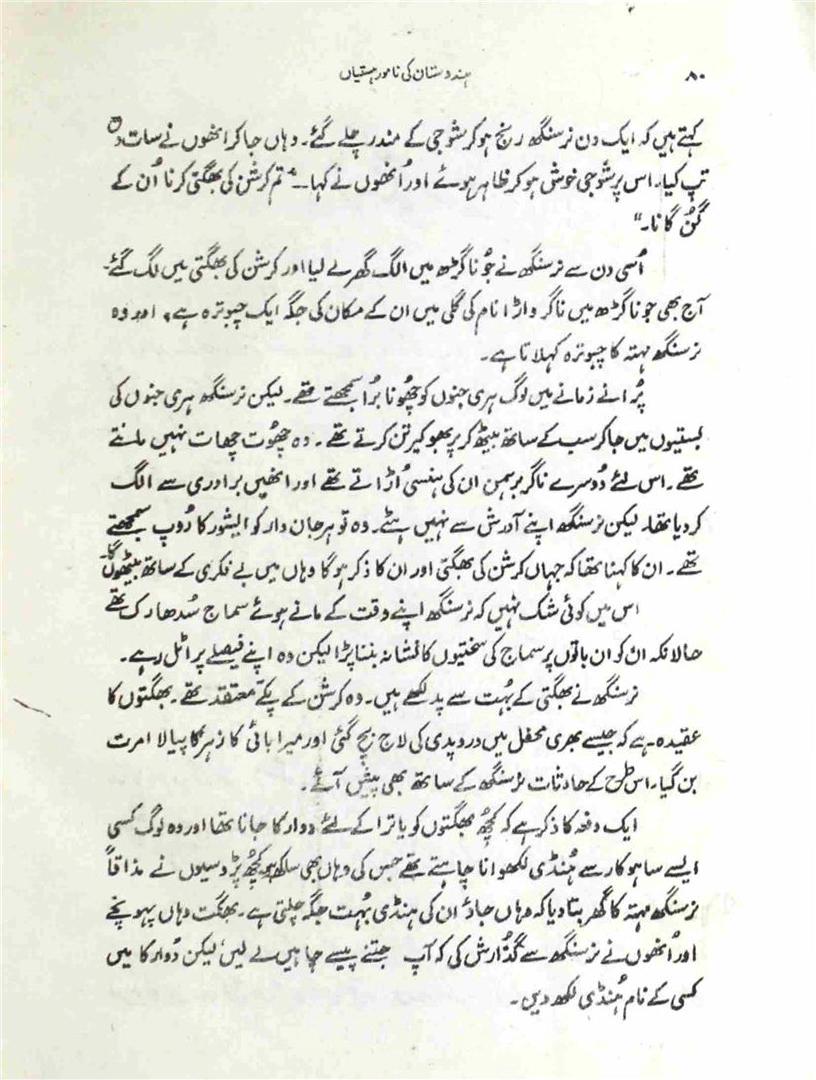 ۸۰
ہندوستان کی نامور ہستیاں
کہتے ہیں کہ ایک دن نرسنگھ رنج ہوکر شوجی کے مندر چلے گئے۔ وہاں جاکر انھوں نے سات دن
تپ کیا۔ اس پر شوجی خوش ہوکر ظاہر ہوئے اور اُنھوں نے کہا۔" تم کرشن کی بھگتی کرنا اُن کے
گُن گانا۔"
اُسی دن سے نرسنگھ نے جُوناگڑھ میں الگ گھر لے لیا اور کرشن کی بھگتی میں لگ گئے۔
آج بھی جوناگڑھ میں ناگر واڑا نام کی گلی میں ان کے مکان کی جگہ ایک چبوترہ ہے، اور وہ
نرسنگھ مہتہ کا چبوترہ کہلاتا ہے۔
پُرانے زمانے میں لوگ ہری جنوں کو چھُونا بُرا سمجھتے تھے۔ لیکن نرسنگھ ہری جنوں کی
بستیوں میں جاکر سب کے ساتھ بیٹھ کر پربھو کیرتن کرتے تھے۔ وہ چھُوت چھات نہیں مانتے
تھے۔ اس لئے دُوسرے ناگر برہمن ان کی ہنسی اُڑاتے تھے اور انھیں برادری سے الگ
کردیا تھا۔ لیکن نرسنگھ اپنے آدرش سے نہیں ہٹے۔ وہ تو ہر جان دار کو ایشور کا رُوپ سمجھتے
تھے۔ ان کا کہنا تھا کہ جہاں کرشن کی بھگتی اور ان کا ذکر ہوگا وہاں میں بے فکری کے ساتھ بیٹھوں گا۔
اس میں کوئی شک نہیں کہ نرسنگھ اپنے وقت کے مانے ہوئے سماج سُدھارک تھے
حالانکہ ان کو ان باتوں پر سماج کی سختیوں کا نشانہ بننا پڑا لیکن وہ اپنے فیصلے پر اٹل رہے۔
نرسنگھ نے بھگتی کے بہُت سے پد لکھے ہیں۔ وہ کرشن کے پکّے معتقد تھے۔ بھگتوں کا
عقیدہ ہے کہ جیسے بھری محفل میں دروپدی کی لاج بچ گئی اور میرابائی کا زہر کا پیالا امرت
بن گیا۔ اس طرح کے حادثات نرسنگھ کے ساتھ بھی پیش آئے۔
ایک دفعہ کا ذکر ہے کہ کچھ بھگتوں کو یاترا کے لئے دوارکا جانا تھا اور وہ لوگ کسی
ایسے ساہوکار سے ہُنڈی لکھوانا چاہتے تھے جس کی وہاں بھی ساکھ ہو کچھ پڑوسیوں نے مذاقاً
نرسنگھ مہتہ کا گھر بتا دیا کہ وہاں جاؤ ان کی ہنڈی بہُت جگہ چلتی ہے۔ بھگت وہاں پہونچے
اور اُنھوں نے نرسنگھ سے گُذارش کی کہ آپ جتنے پیسے چاہیں لے لیں، لیکن دُوارکا میں
کسی کے نام ہُنڈی لکھ دیں۔